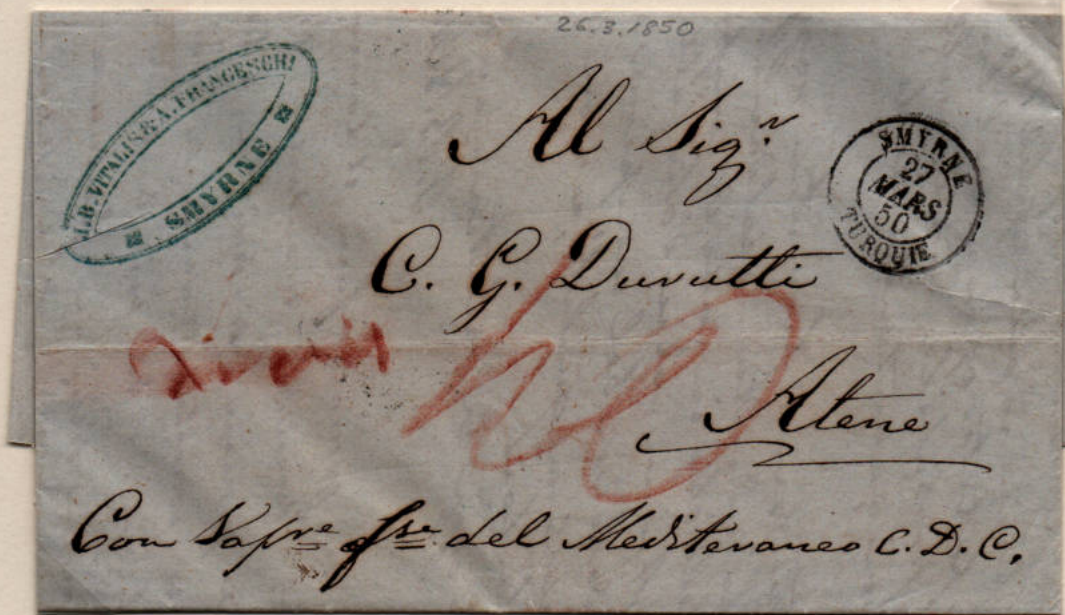 26.3.1850
I.B. VITALIS & A. FRANCESCHI
SMYRNE
Al Sigr.
SMYRNE
27
MARS
50
TURQUIE
C. G. Durutti
40
Atene
Con Vapre. fse. del Mediteraneo C. D. C.